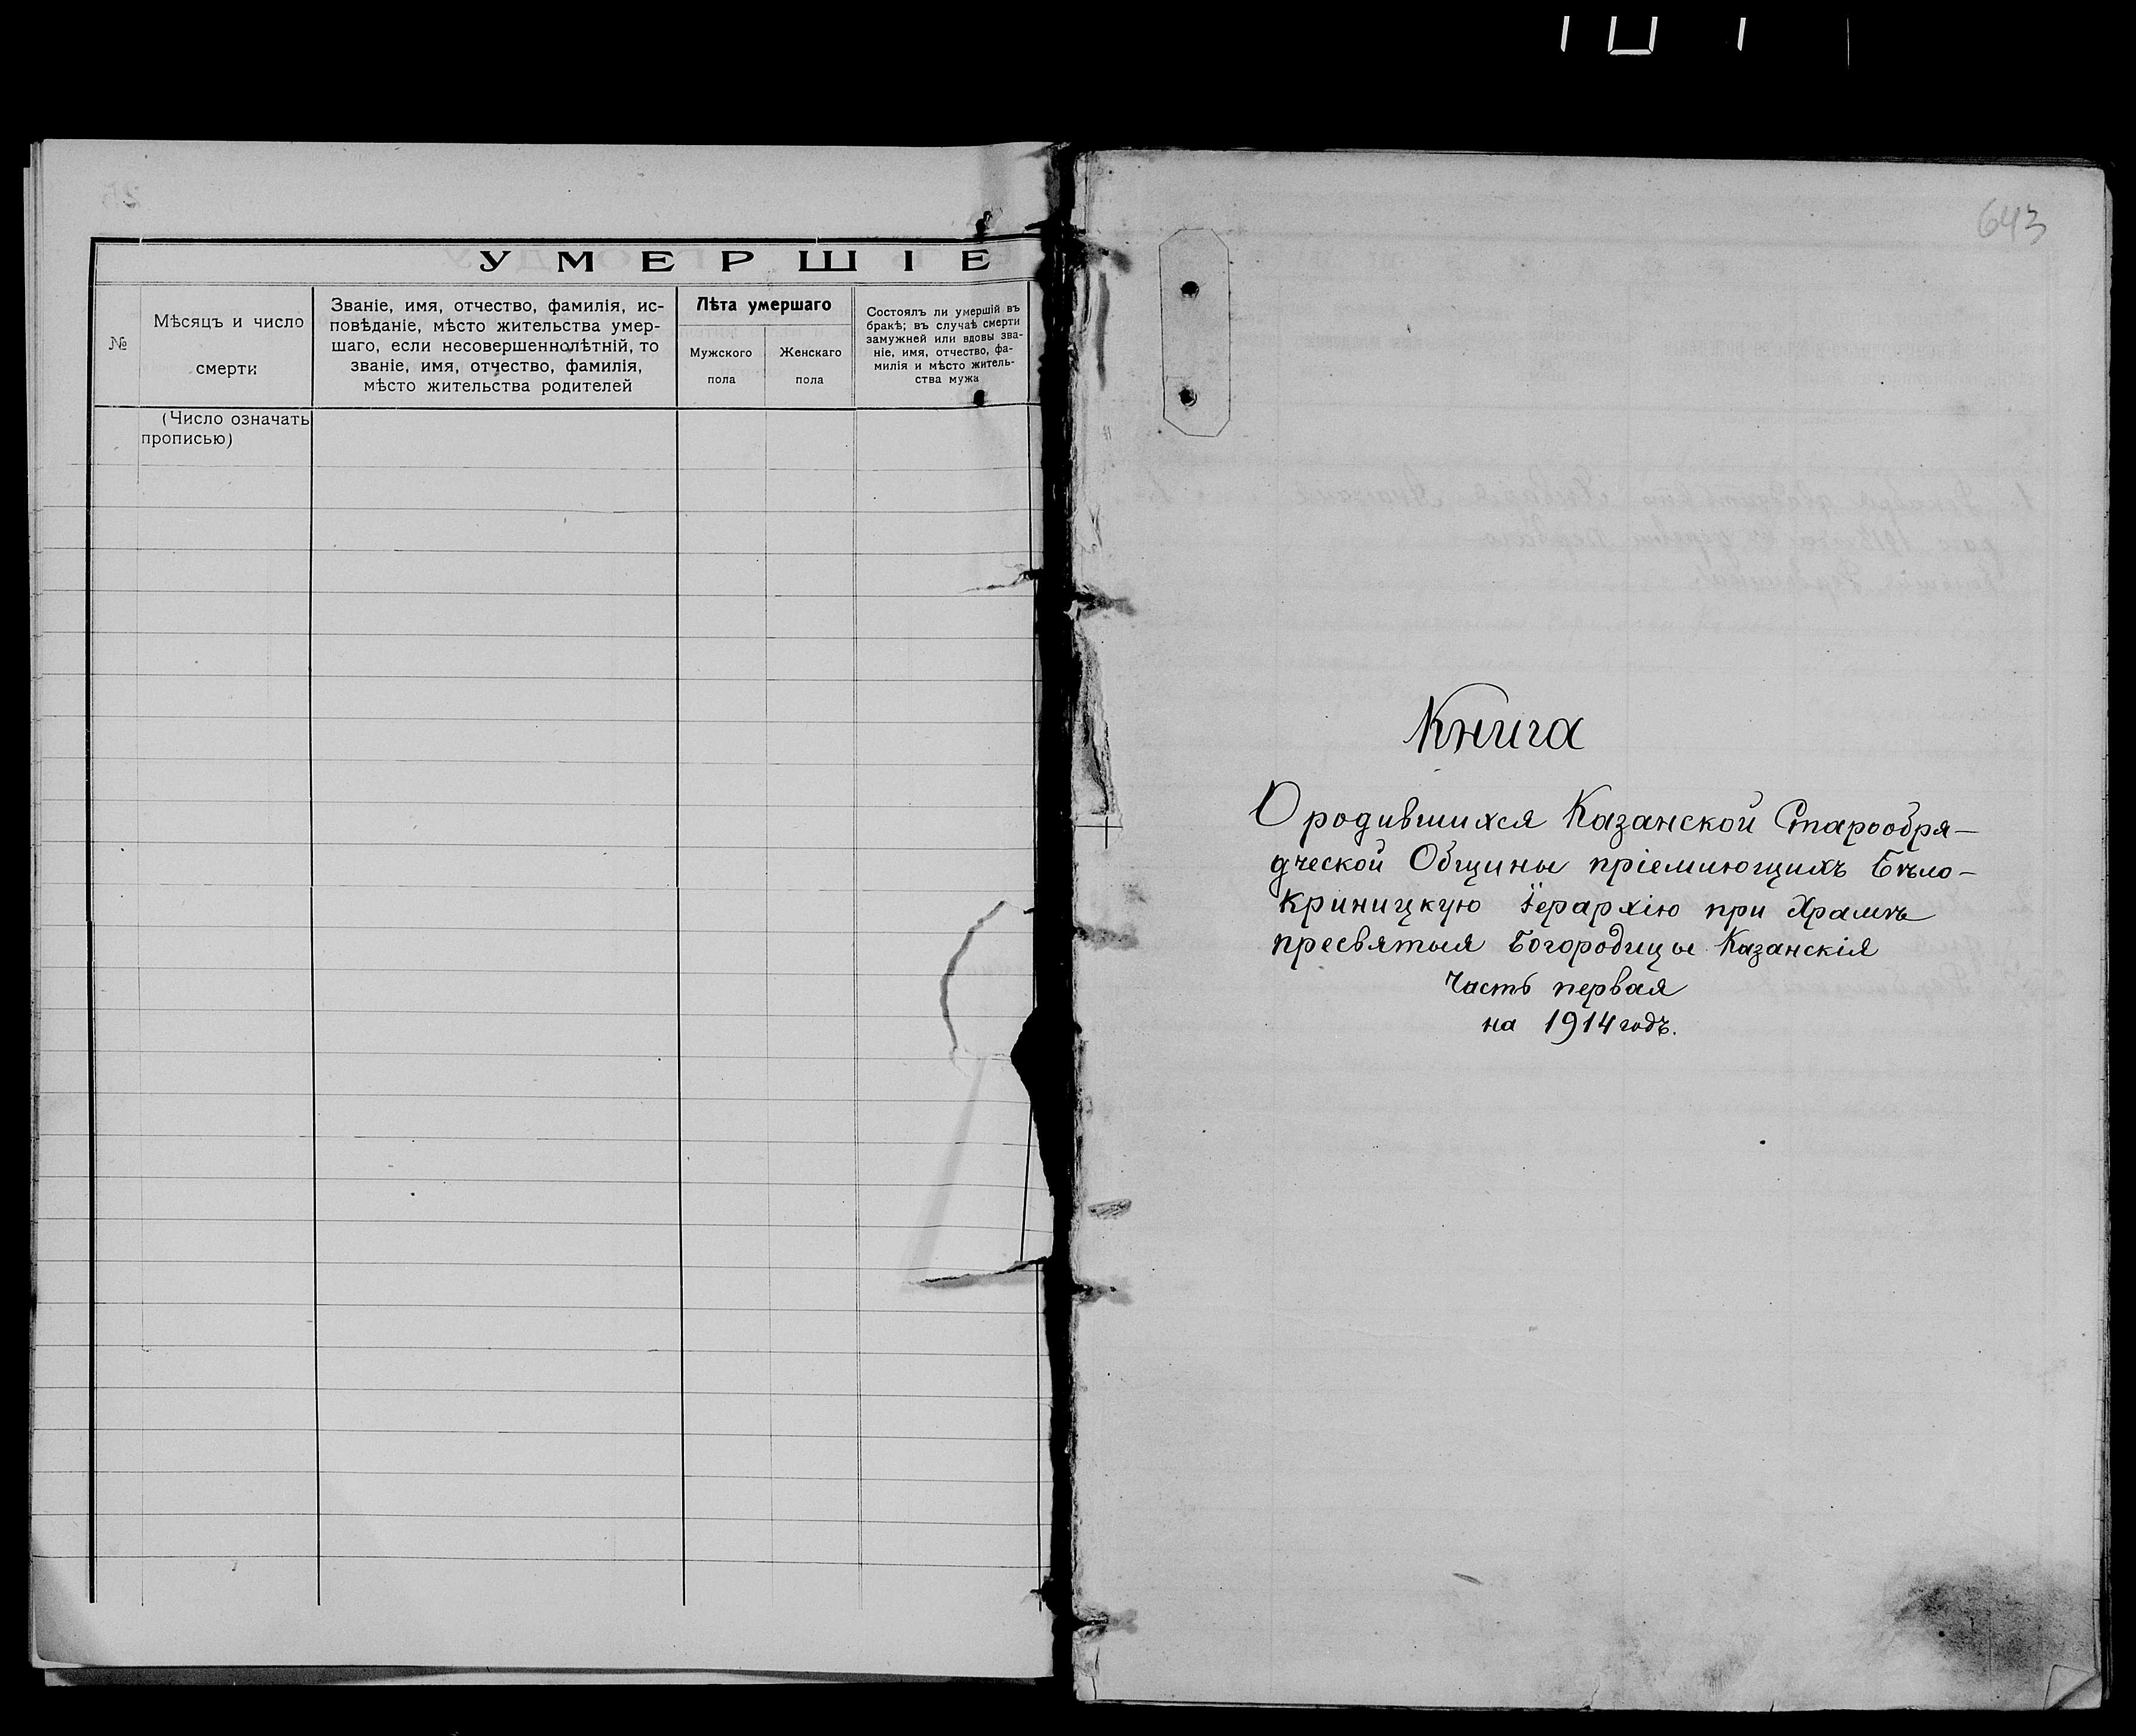 УМЕРШІЕ
№
Мѣсяцъ и число
смерти
Званіе, имя, отчество, фамилія, ис-
повѣданіе, мѣсто жительства умер-
шаго, если несовершеннолѣтній, то
званіе, имя, отчество, фамилія,
мѣсто жительства родителей
Лѣта умершаго
Мужского
пола
Женскаго
пола
Состоялъ ли умершій въ
бракѣ; въ случаѣ смерти
замужней или вдовы зва-
ніе, имя, отчество, фа-
милія и мѣсто житель-
ства мужа
(Число означать
прописью)
643
Книга
О родившихся Казанской Старообря-
дческой Общины пріемлющихъ Бѣло-
криницкую Іерархію при Храмѣ
пресвятыя Богородицы Казанскія
Часть первая
на 1914 годъ.